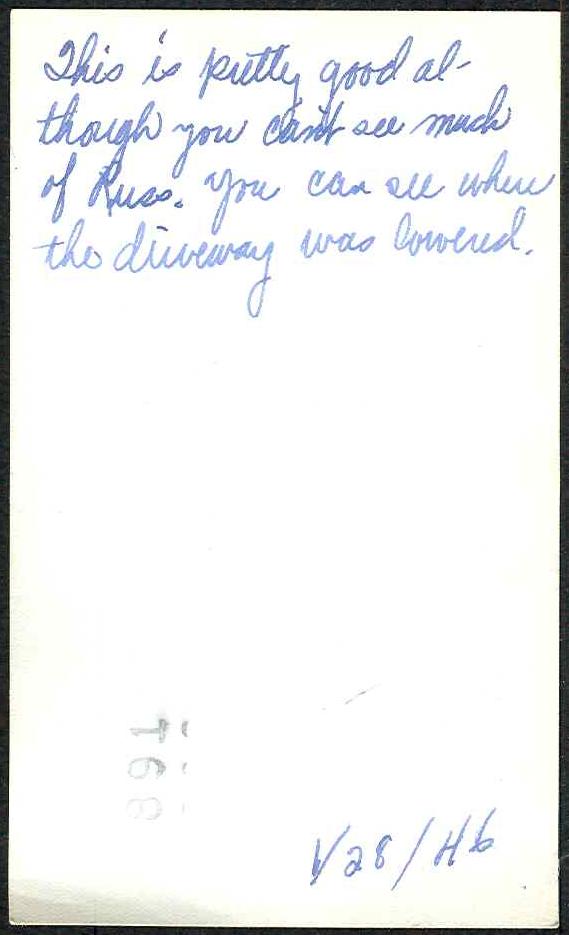 This is pretty good al-
though you can't see much
of Russ. You can see where
the driveway was lowered.
168
V28/H6